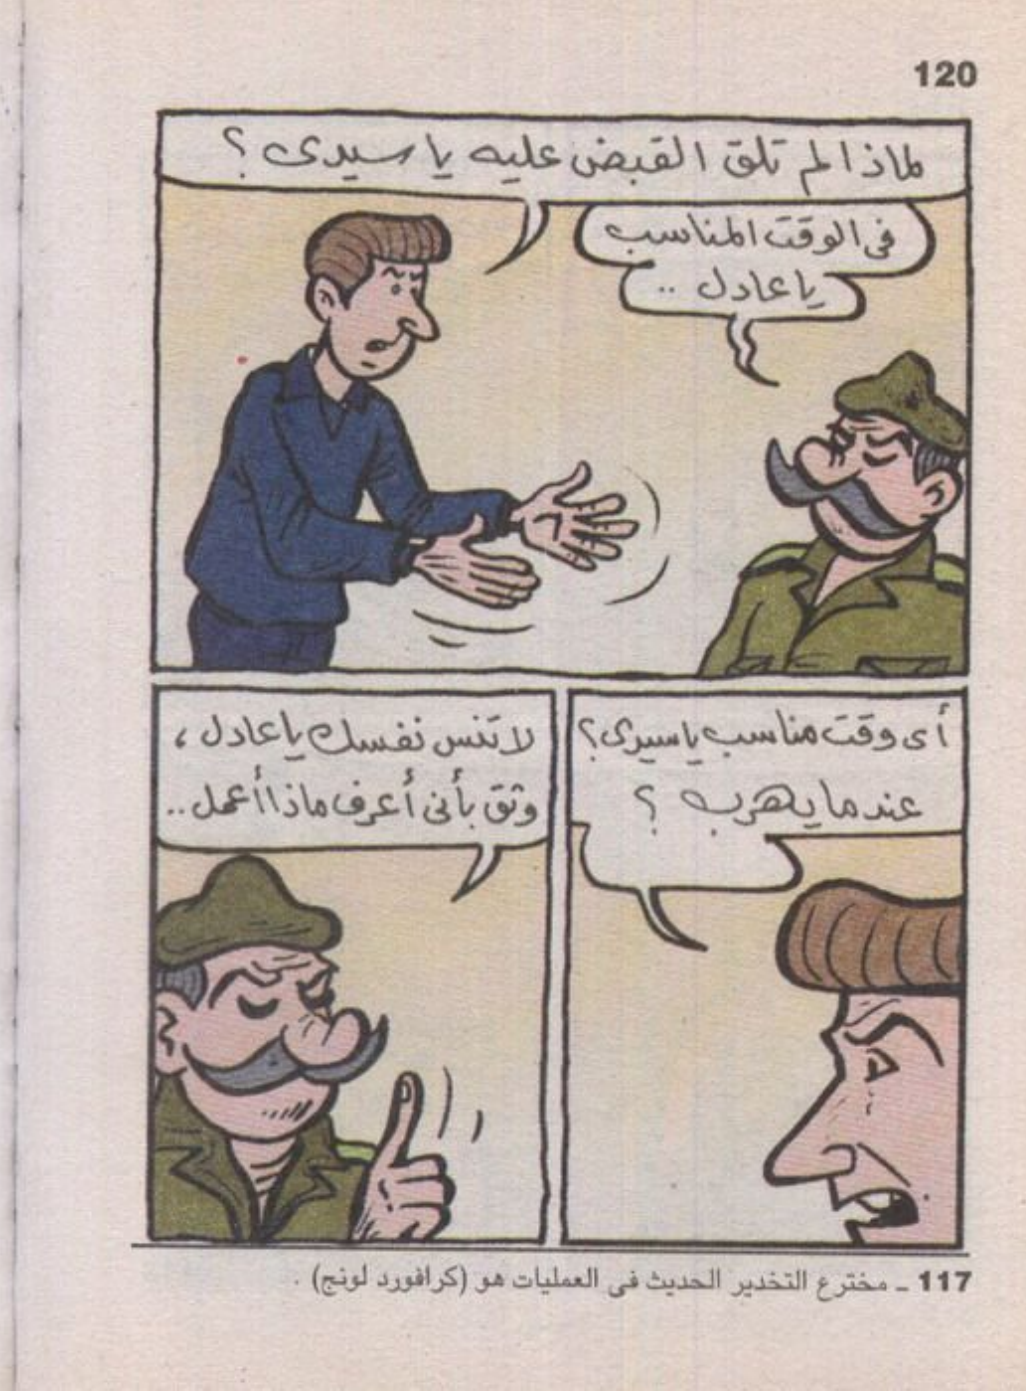 120
لماذا لم تلق القبض عليه يا سيدى ؟
فى الوقت المناسب
يا عادل ..
أى وقت مناسب يا سيدى ؟
عندما يهرب ؟
لا تنس نفسك يا عادل ،
وثق بأنى أعرف ماذا أعمل ..
117 ـ مخترع التخدير الحديث فى العمليات هو (كرافورد لونج) .